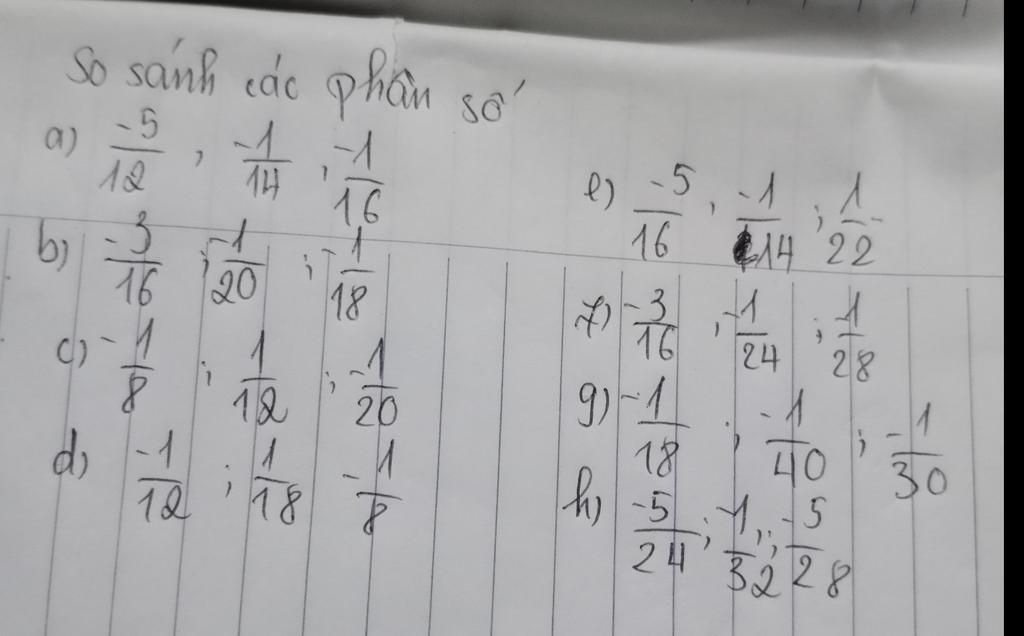 So sánh các phân số
a) -5/12 , -1/14 , -1/16
b) -3/16 ; -1/20 ; -1/18
c) -1/8 ; 1/12 ; -1/20
d) -1/12 ; 1/18 -1/8
e) -5/16 , -1/14 ; 1/22
f) -3/16 , -1/24 ; 1/28
g) -1/18 ; -1/40 ; -1/30
h) -5/24 ; -1/32 ; -5/28